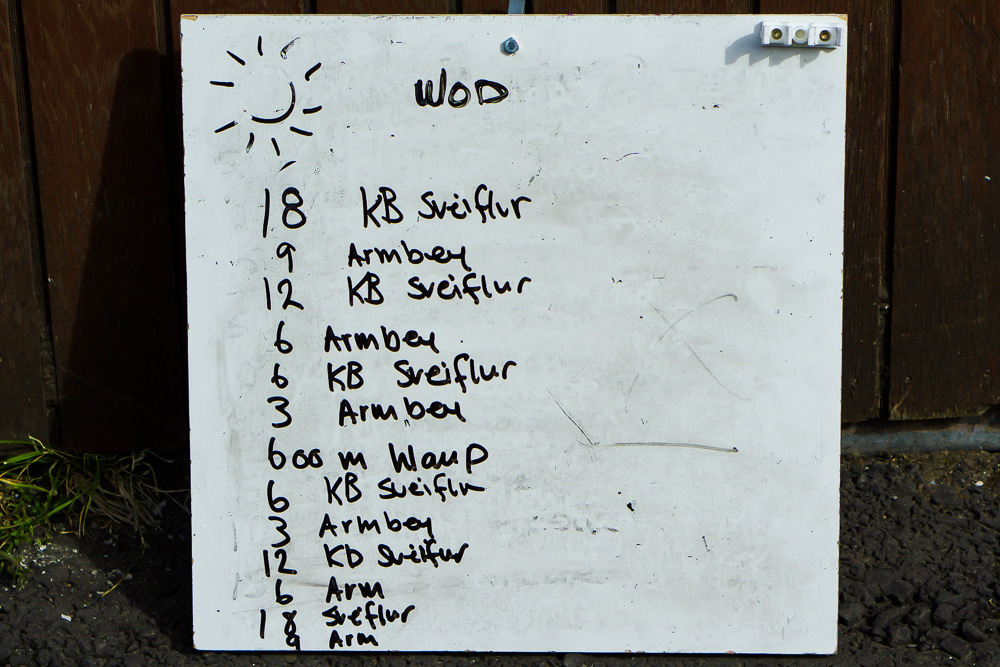 WOD
18 KB Sveiflur
9 Armbey
12 KB Sveiflur
6 Armbey
6 KB Sveiflur
3 Armbey
600 m Hlaup
6 KB Sveiflu
3 Armbey
12 KB Sveiflur
6 Arm
18 Sveflur
9 Arm